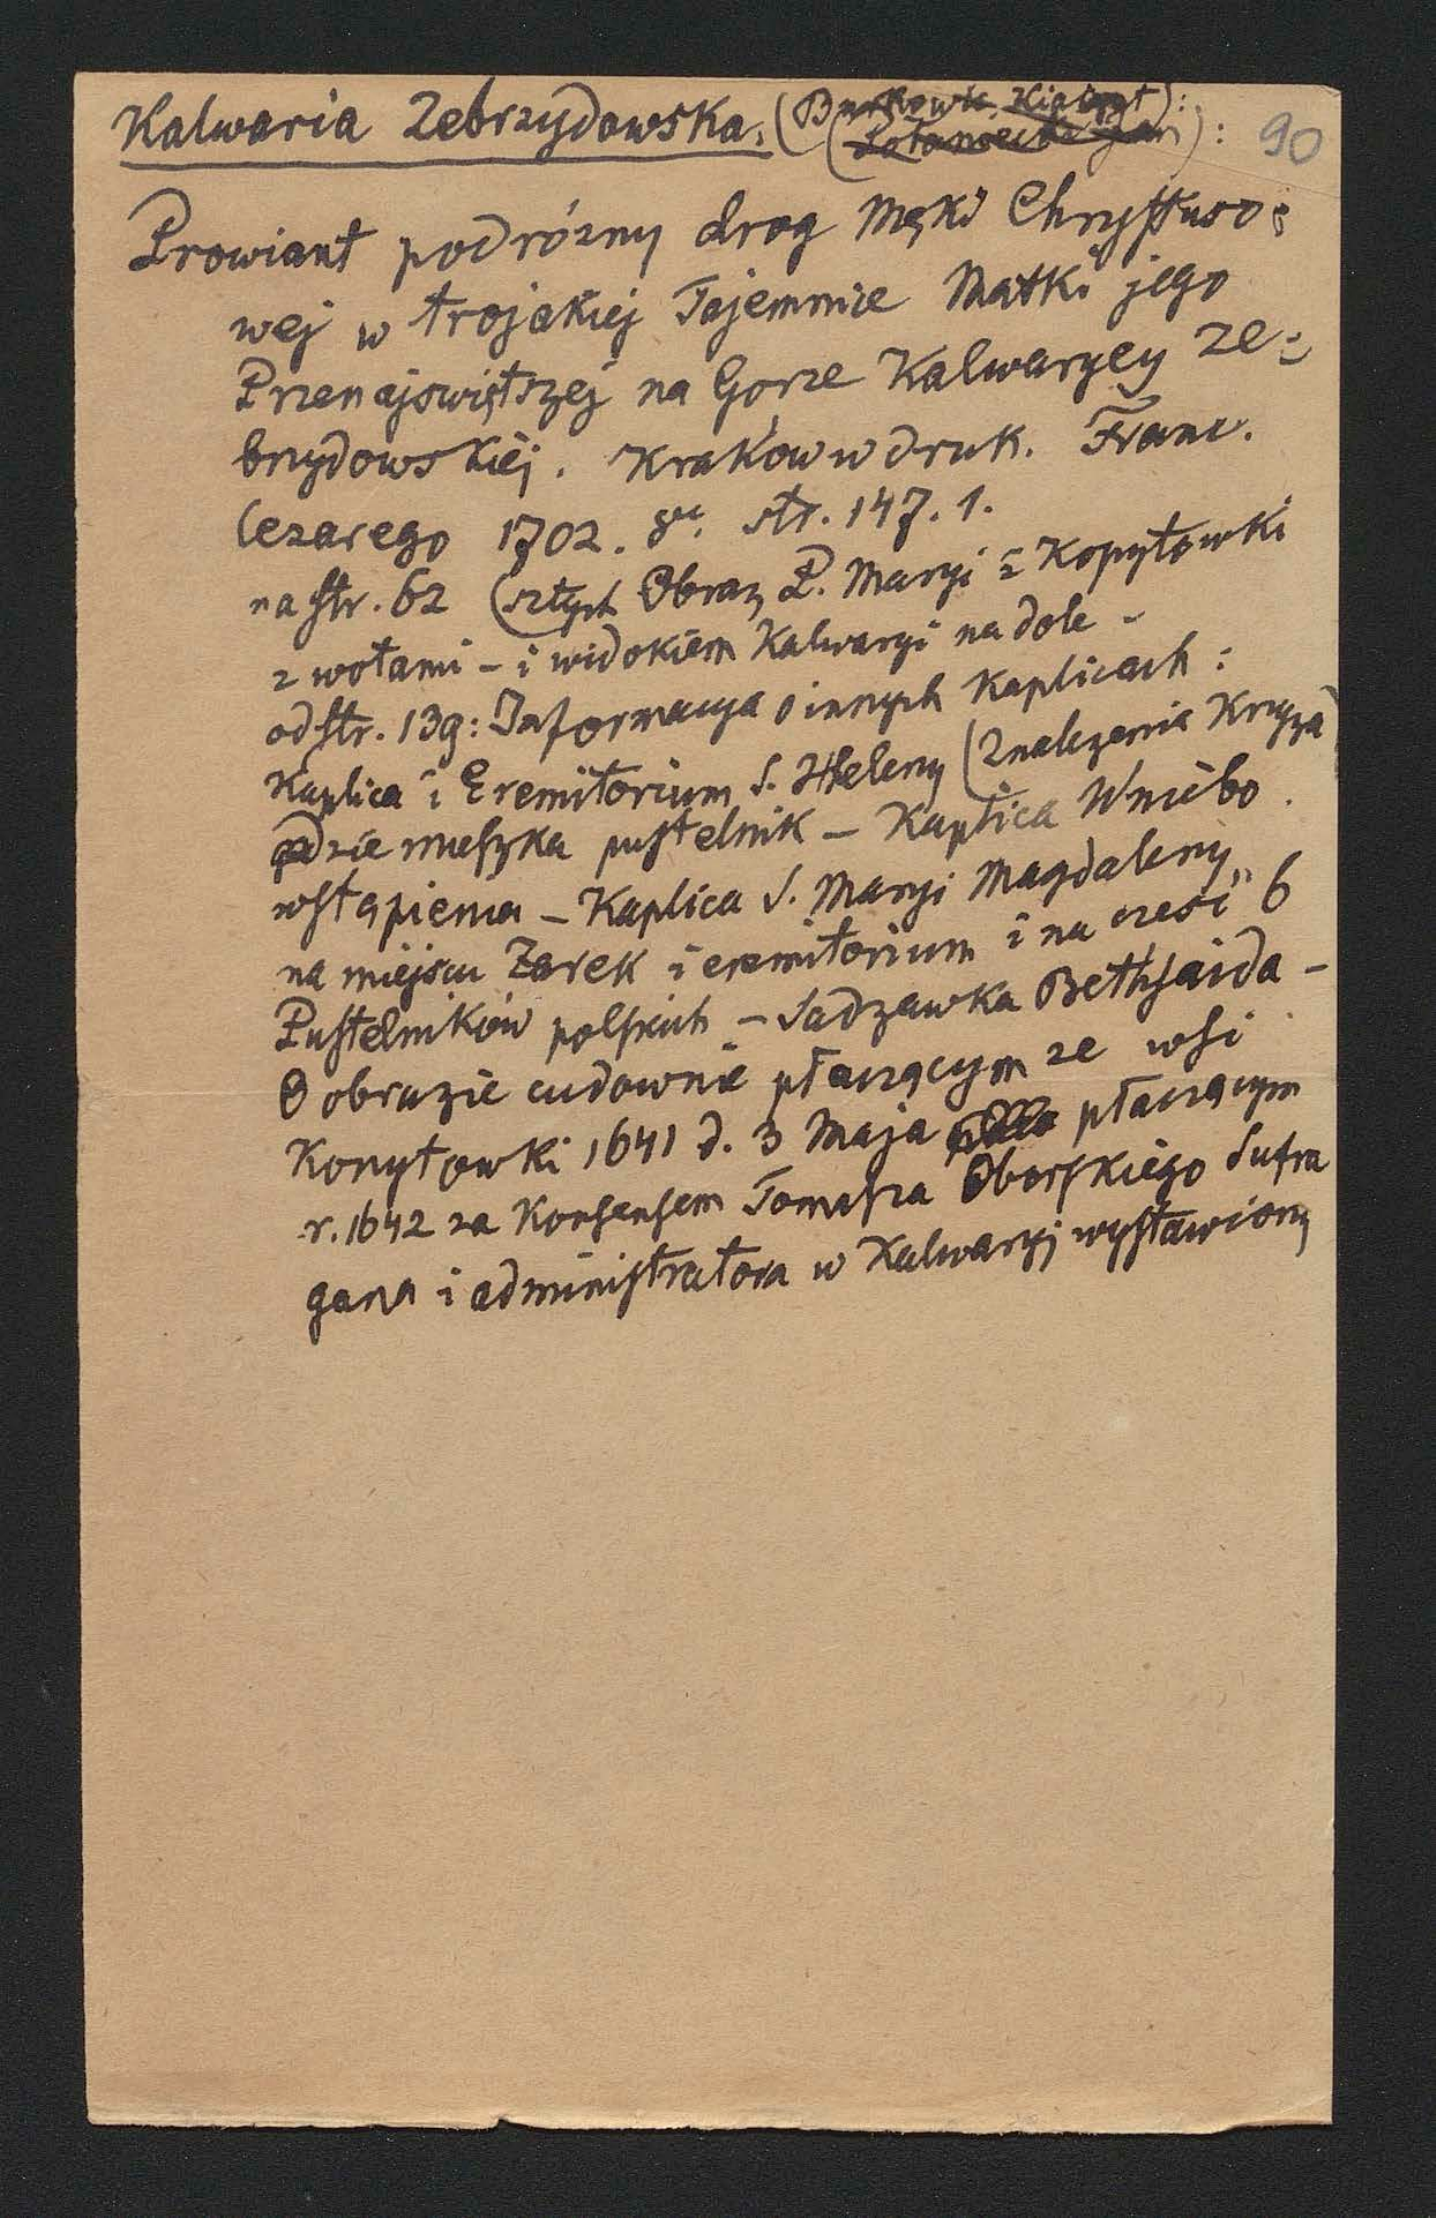 Kalwaria Zebrzydowska. (Burkowic : 90
Prowiant podrózny drog Męki Chrysstuso=
wej w trojakiej Tajemnice Matki jego
Przenajswiętszej na Gorze Kalwaryey Ze=
brzydowskiej. Kraków w druk. Franc.
Cezarego 1702. 8vc. str. 147. 1.
na str. 62 (sztych Obraz P. Maryi z Kopytowki
z wotami – i widokiem Kalwaryi na dole –
od str. 139: Informacya o innych Kaplicach :
Kaplica i Eremitorium S. Heleny (Znalezenia Krzyza)
gdzie mieszka pustelnik – Kaplica W niebo
wstąpienia – Kaplica S. Maryi Magdaleny
na miejscu Zarek i eremitorium i na czesć 6
Pustelników polskich – Sadzawka Bethsaida –
O obrazie cudownie płaczącym ze wsi
Kopytowki 1641 d. 3 Maja płaczącym
r. 1642 za Konsensem Tomasza Oborskiego Sufra
gana i administratora w Kalwaryj wystawiony